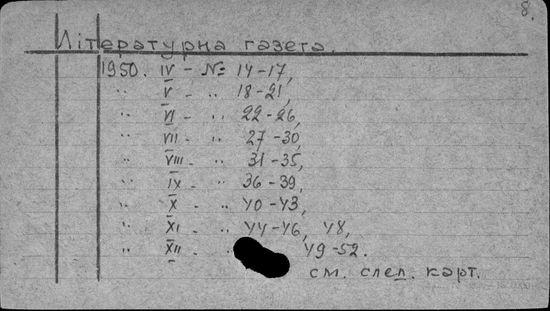 8.
Літературна газета.
1950. IV - № 14-17,
" V - " 18-21,
" VI - " 22-26,
" VII - " 27-30,
" VIII - " 31-35,
" IX - " 36-39,
" X - " 40-43,
" XI - " 44-46, 48,
" XII - " 49-52.
см. след. карт.